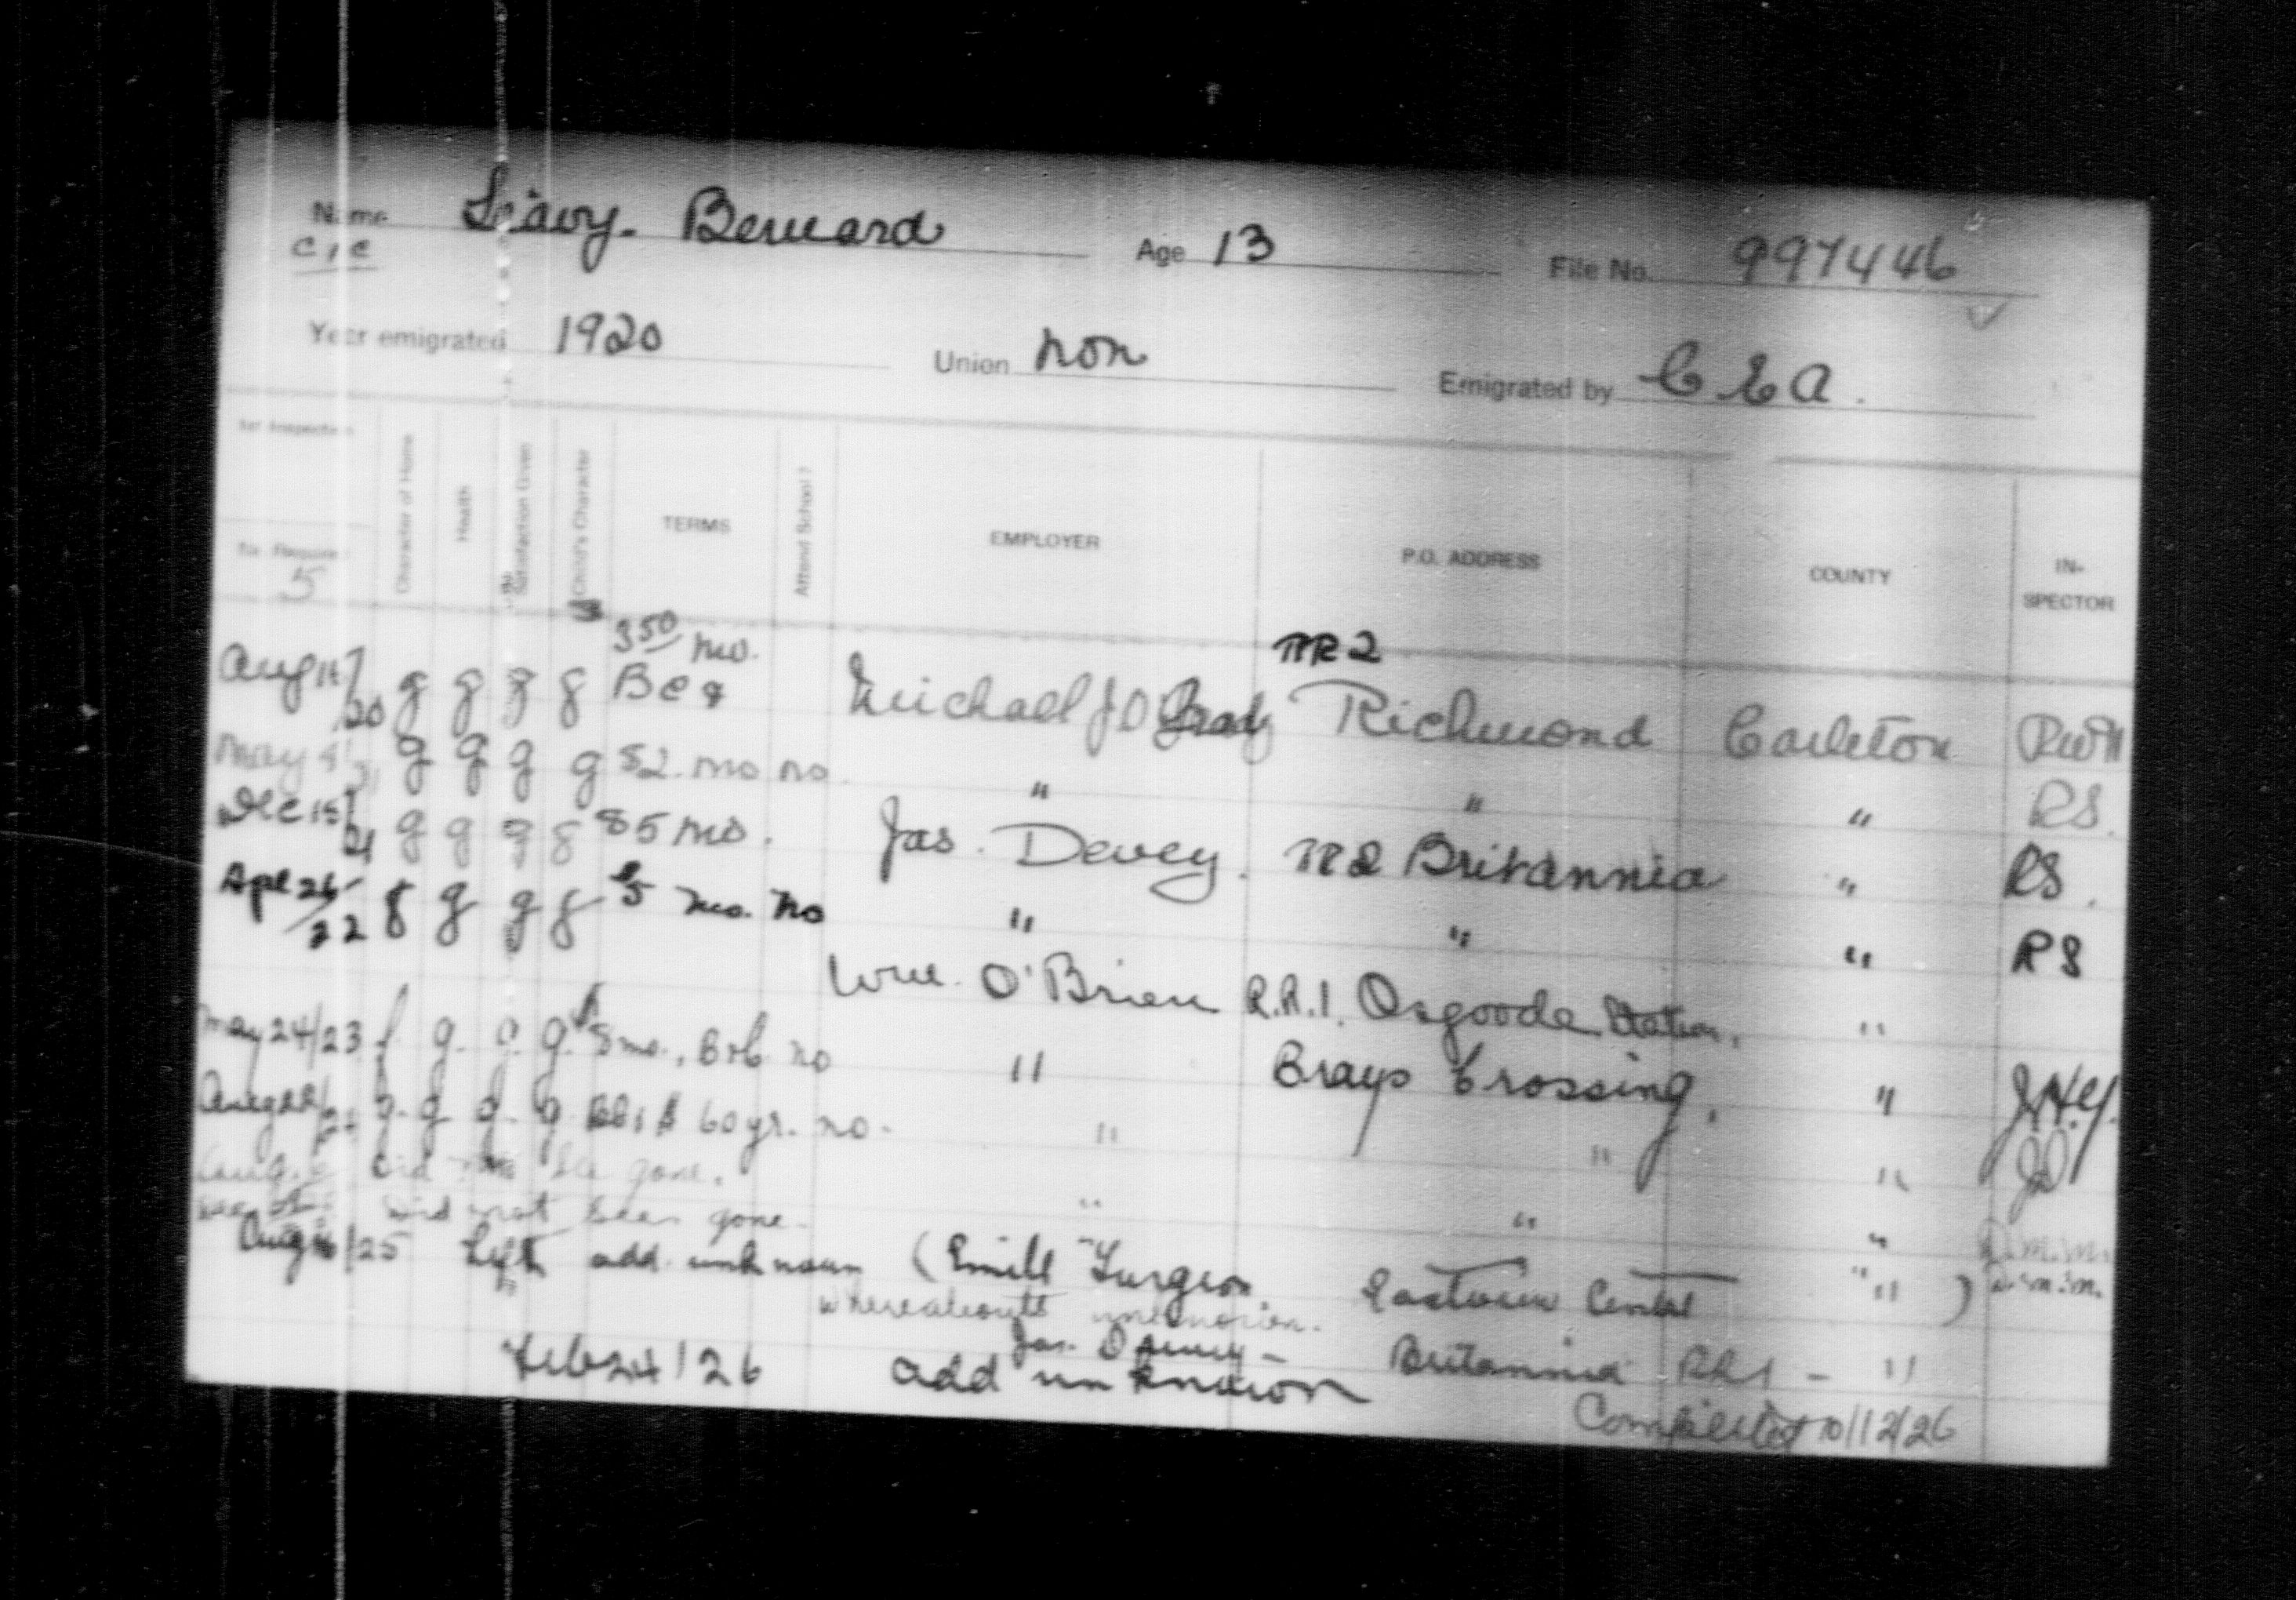 Name Leavy. Bernard Age 13 File No. 997446
C/C
Year emigrated 1920 Union non Emigrated by C E A.
1st Inspection Character of Home Health Satisfaction Given Child's Character TERMS Attend School? EMPLOYER P.O. ADDRESS COUNTY IN-SPECTOR
5
3 50 mo. RR 2
Aug 11/20 g g g g B C & Michael J O'Grady Richmond Carleton
May 4/21 g g g g $2. mo no " " " RS.
Dec 15/21 g g g g $5 mo. Jas. Devey. R2 Britannia " RS.
Apl 26/22 g g g g 5 mo. no " " " RS
Wm. O'Brien R.R.1. Osgoode Station, "
May 24/23 f g. g. g. $8 mo., B & C no " Brays Crossing, " J.H.Y.
Aug g. g g. g $ 60 yr. no. " " "
gone. " " "
Did not see gone " " D.M.M.
Aug /25 Left add. unknown (Emill Turgeon Eastview Central " ) D.M.M.
whereabouts unknown.
Jas. Devey - Britannia RR1 - "
Feb 24/26 add unknown
Completed 10/12/26